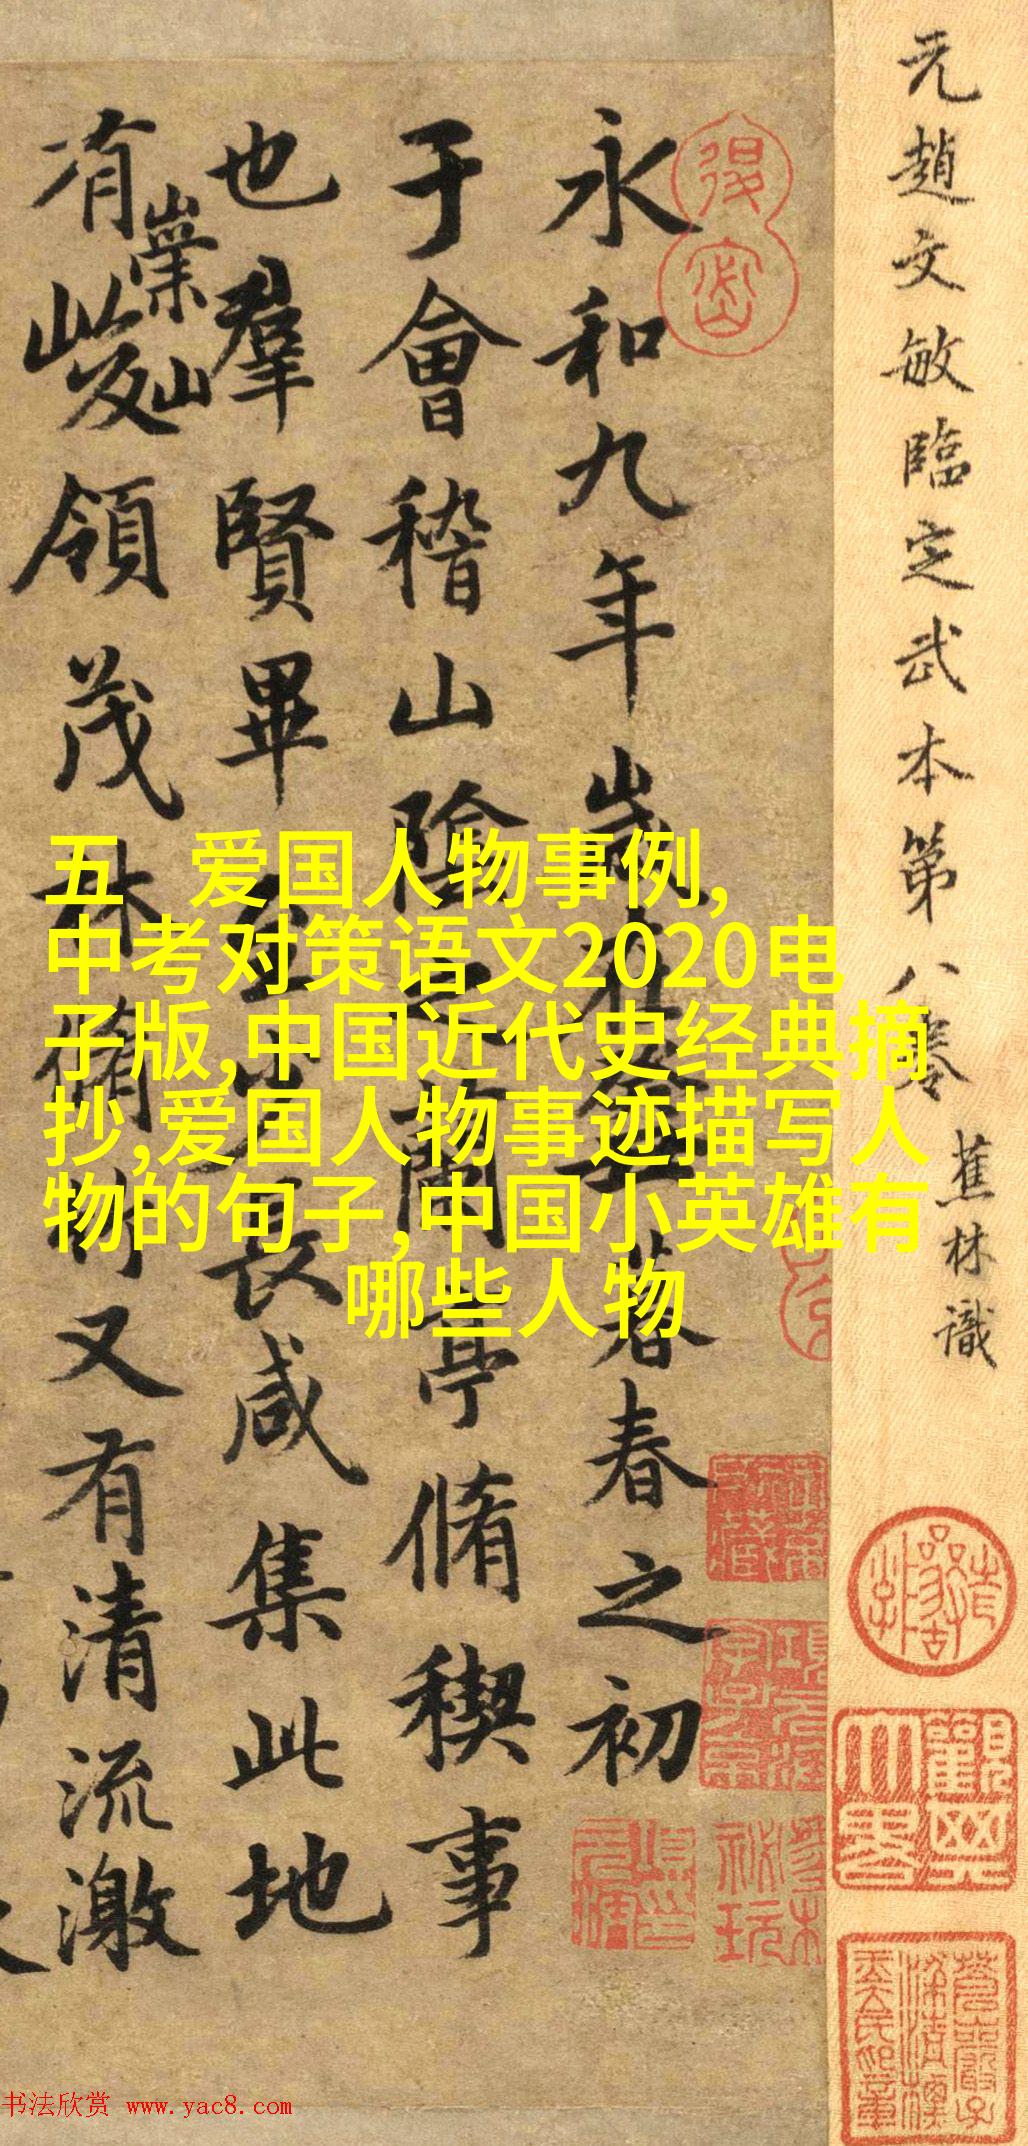 元趙文敏臨定武本第八卷
蕉林識
永和九年歲在癸丑暮春之初
于會稽山陰之蘭亭脩稧事
也羣賢畢至少長咸集此地
有崇山
峻領茂林脩竹又有清流激
五 爱国人物事例,
中考对策语文2020电
子版,中国近代史经典摘
抄,爱国人物事迹描写人
物的句子,中国小英雄有
哪些人物
书法欣赏 www.yac8.com